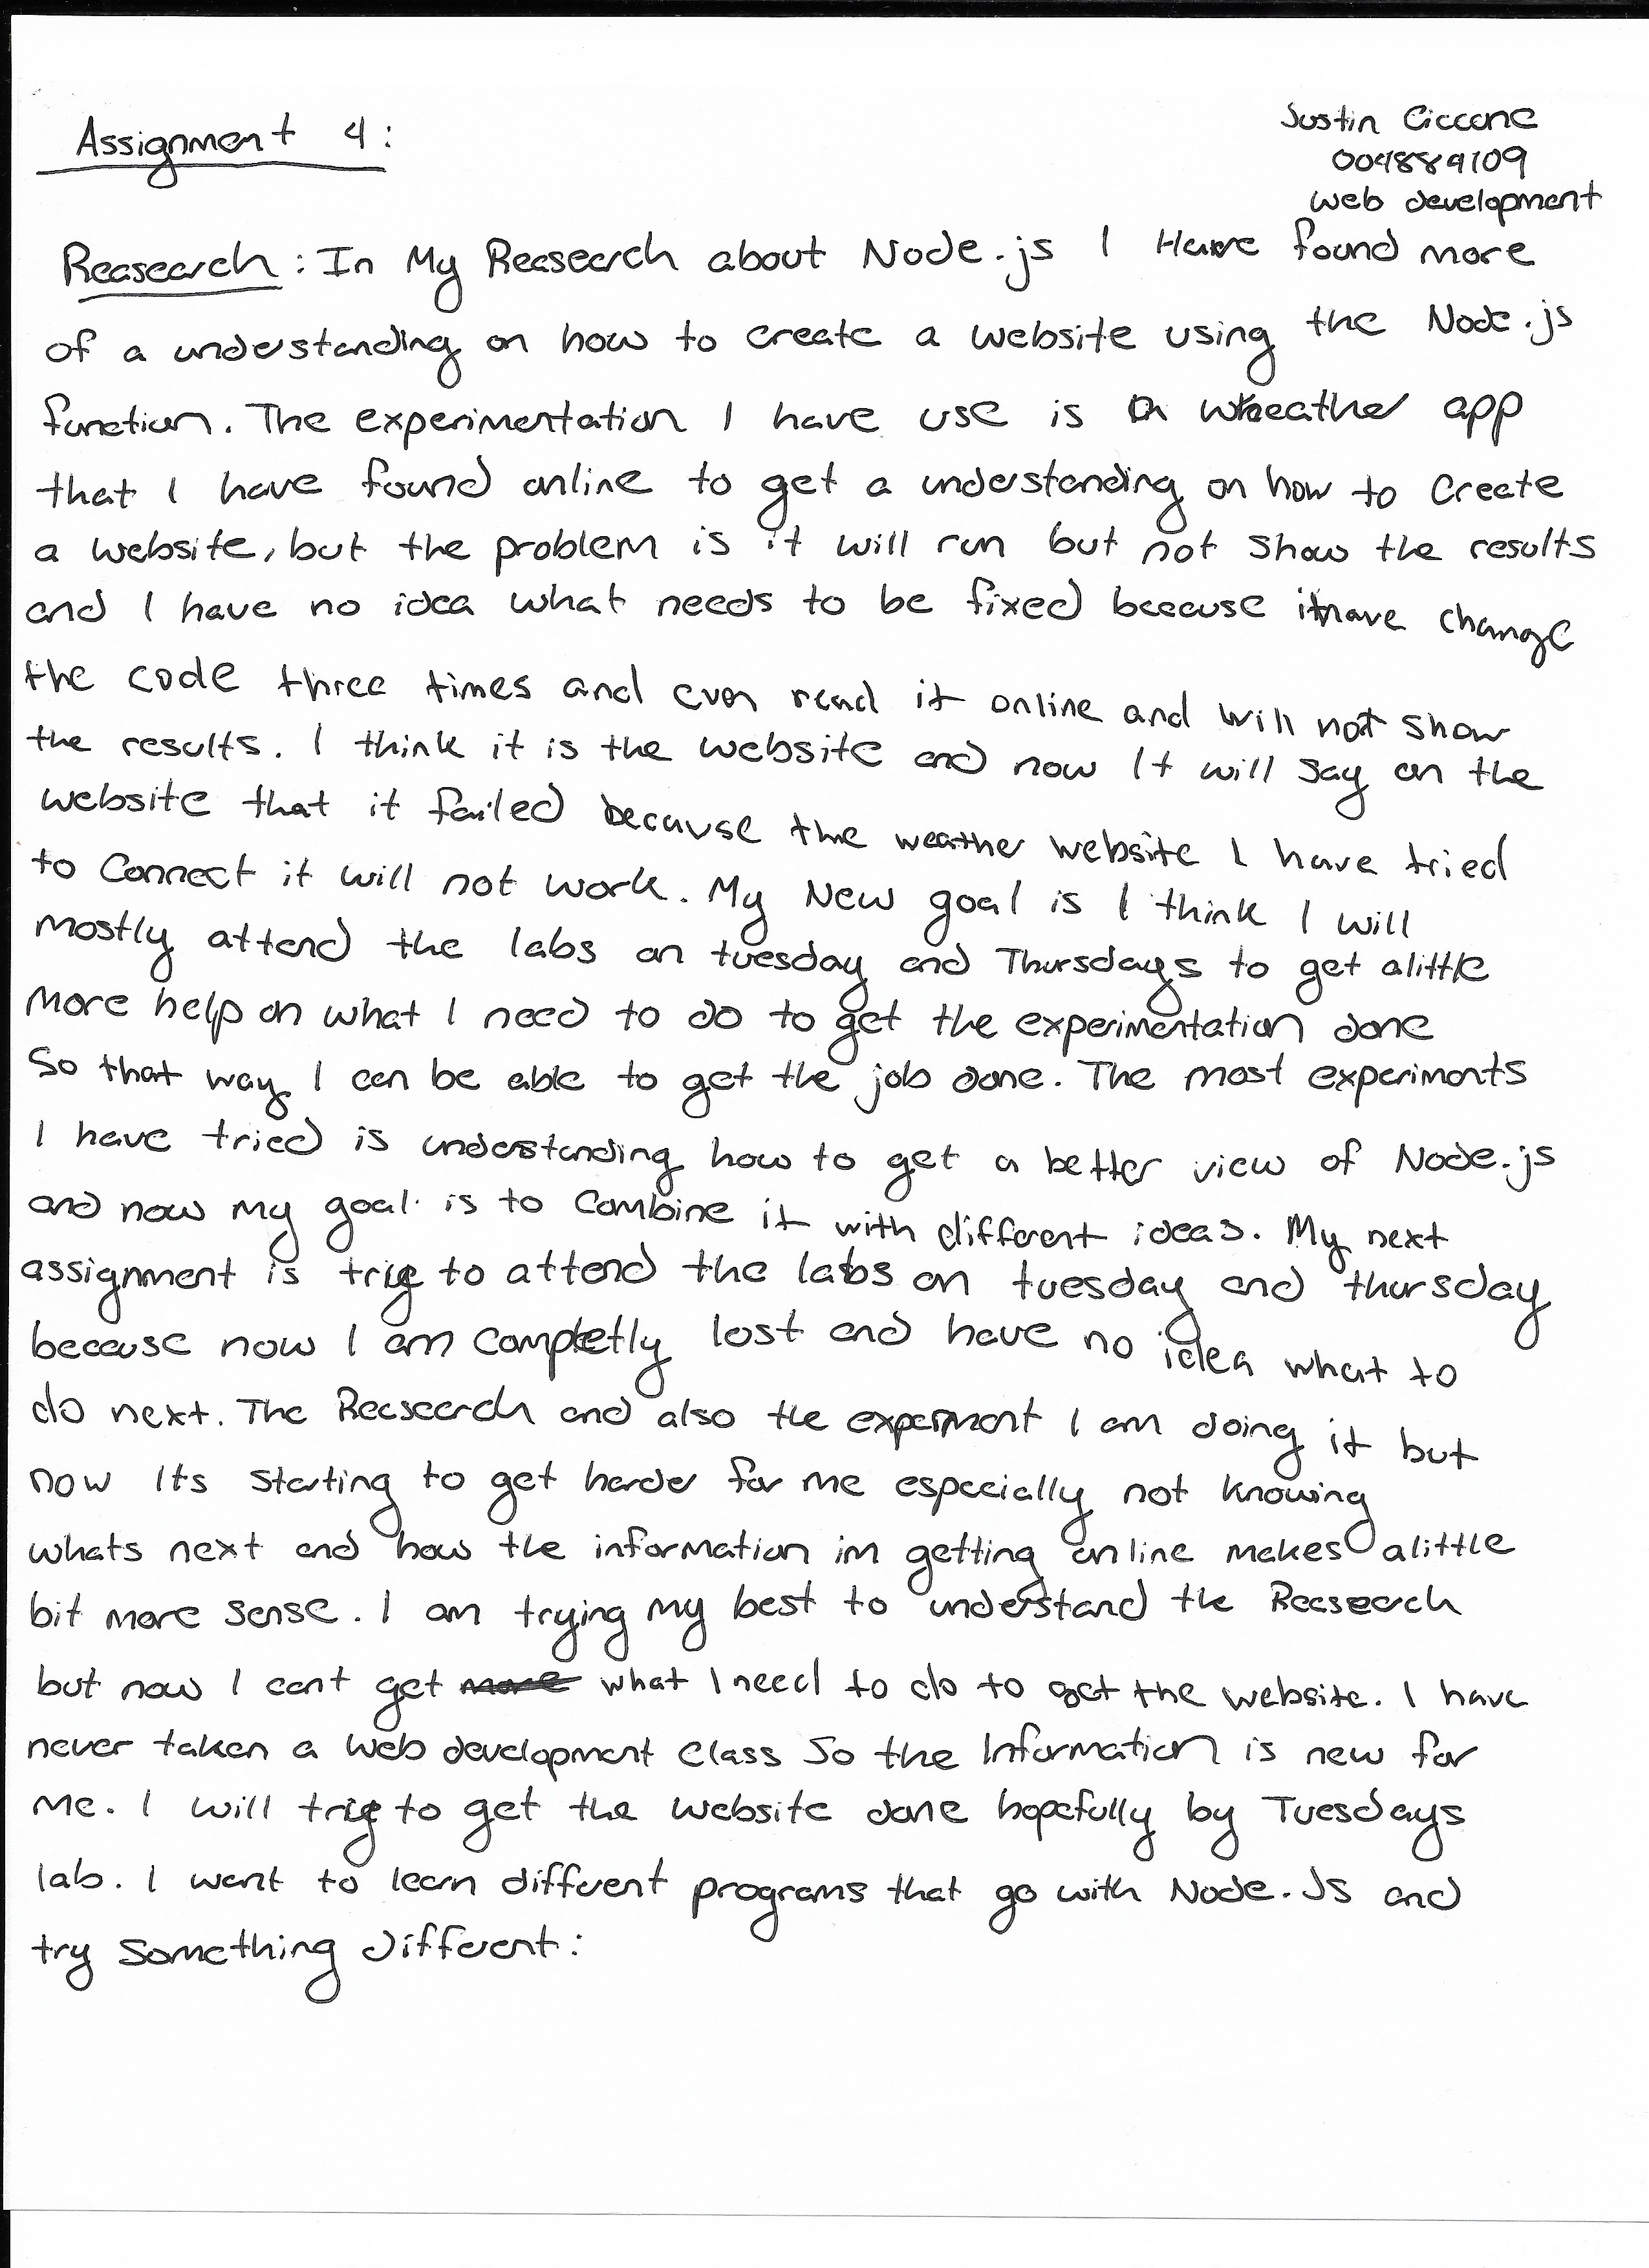 Assignment 4:
Justin Ciccone
004889109
web development
Reasearch: In My Reasearch about Node.js I Have found more
of a understanding on how to create a website using the Node.js
function. The experimentation I have use is a wheather app
that I have found online to get a understanding on how to create
a website, but the problem is it will run but not show the results
and I have no idea what needs to be fixed because it have change
the code three times and even read it online and will not show
the results. I think it is the website and now It will say on the
website that it failed because the weather website I have tried
to connect it will not work. My New goal is I think I will
mostly attend the labs on tuesday and Thursdays to get alittle
more help on what I need to do to get the experimentation done
So that way I can be able to get the job done. The most experiments
I have tried is understanding how to get a better view of Node.js
and now my goal is to combine it with different ideas. My next
assignment is trie to attend the labs on tuesday and thursday
because now I am completly lost and have no idea what to
do next. The Reasearch and also the experiment I am doing it but
now Its starting to get harder for me especially not knowing
whats next and how the information im getting online makes alittle
bit more sense. I am trying my best to understand the Reasearch
but now I cant get what I need to do to get the website. I have
never taken a web development class So the Information is new for
me. I will trie to get the website done hopefully by Tuesdays
lab. I want to learn different programs that go with Node.Js and
try something different: